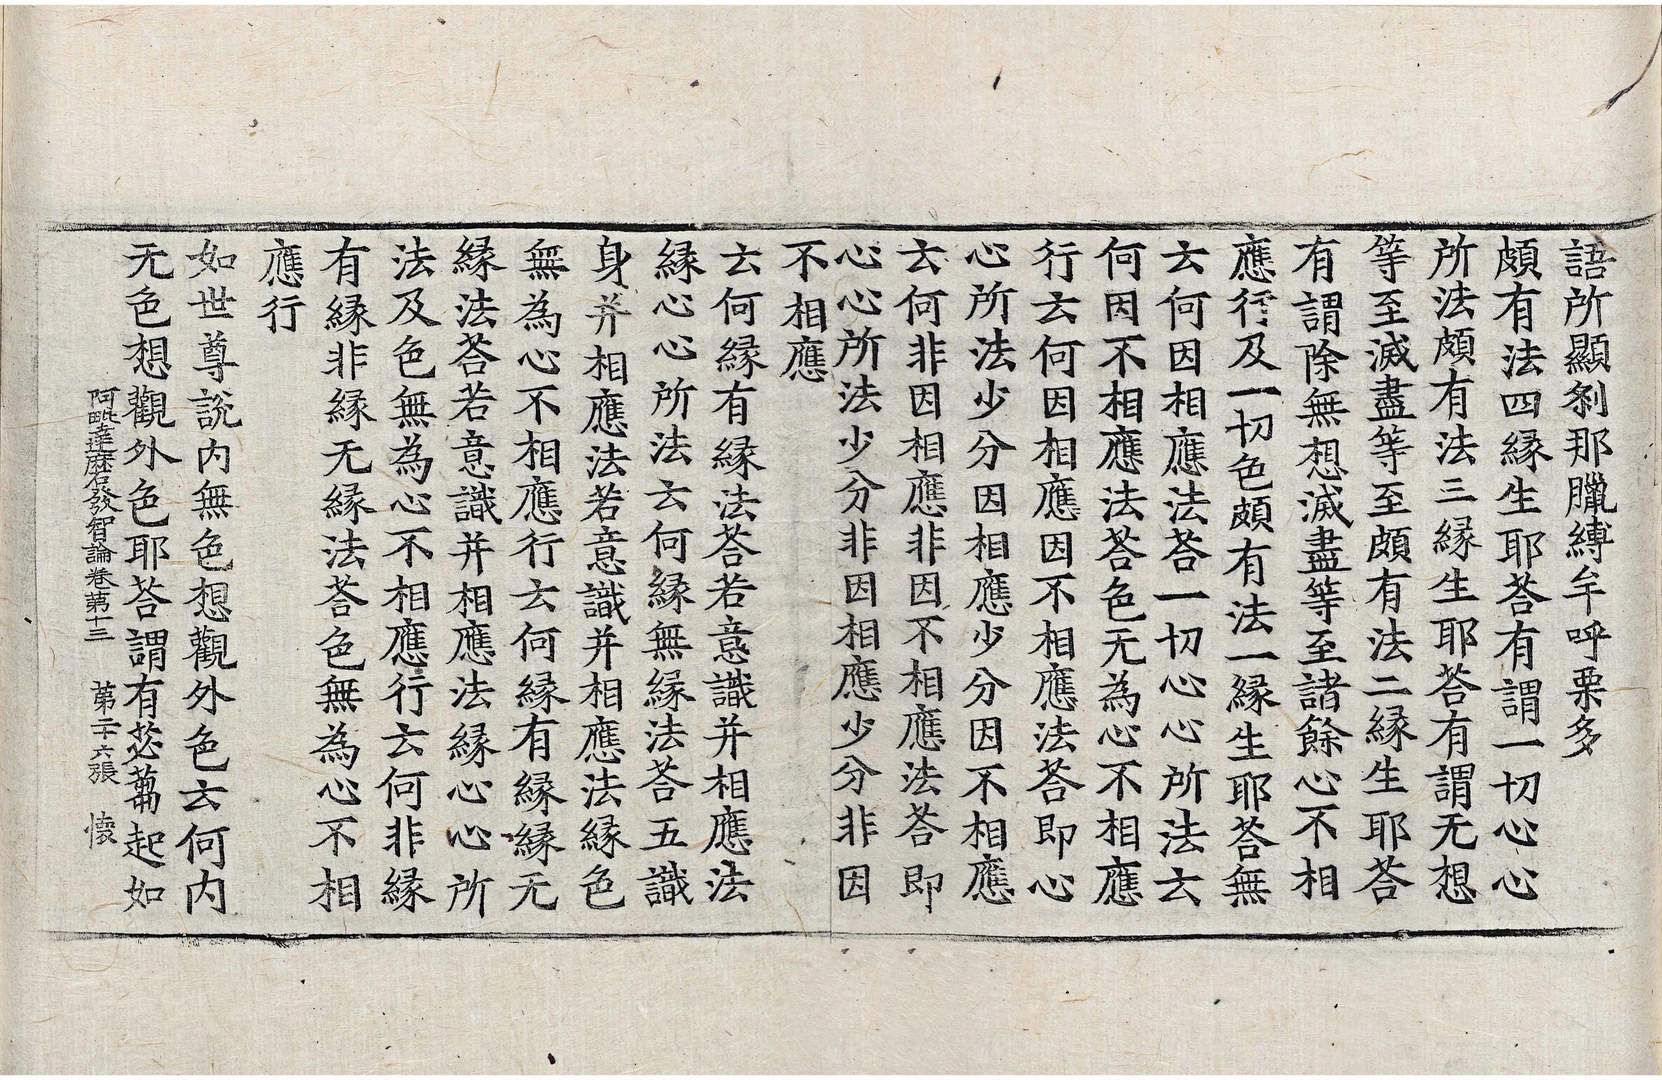 語所顯刹那臘縛牟呼栗多
頗有法四縁生耶荅有謂一切心心
所法頗有法三縁生耶荅有謂无想
等至滅盡等至頗有法二縁生耶荅
有謂除無想滅盡等至諸餘心不相
應行及一切色頗有法一縁生耶荅無
云何因相應法荅一切心心所法云
何因不相應法荅色无為心不相應
行云何因相應因不相應法荅即心
心所法少分因相應少分因不相應
云何非因相應非因不相應法荅即
心心所法少分非因相應少分非因
不相應
云何縁有縁法荅若意識并相應法
縁心心所法云何縁無縁法荅五識
身并相應法若意識并相應法縁色
無為心不相應行云何縁有縁縁无
縁法荅若意識并相應法縁心心所
法及色無為心不相應行云何非縁
有縁非縁无縁法荅色無為心不相
應行
如世尊說内無色想觀外色云何内
无色想觀外色耶荅謂有苾蒭起如
阿毗達磨發智論卷第十三 第二十六張 懷